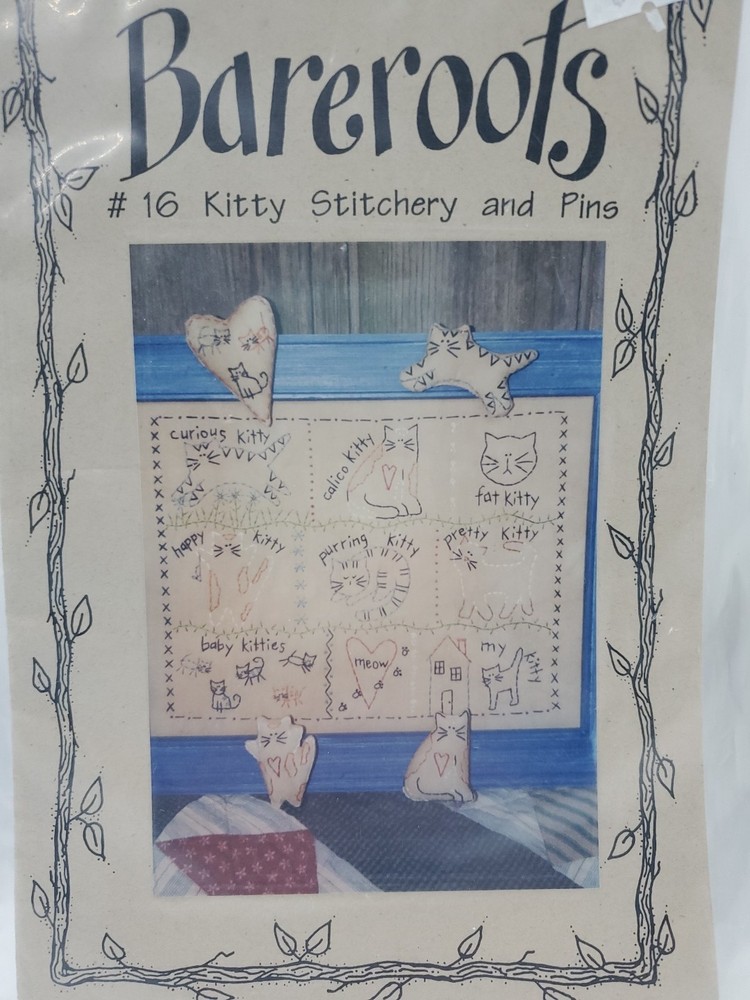 Bareroots
# 16 Kitty Stitchery and Pins
curious kitty
calico kitty
fat kitty
happy kitty
purring kitty
pretty kitty
baby kitties
meow
my kitty